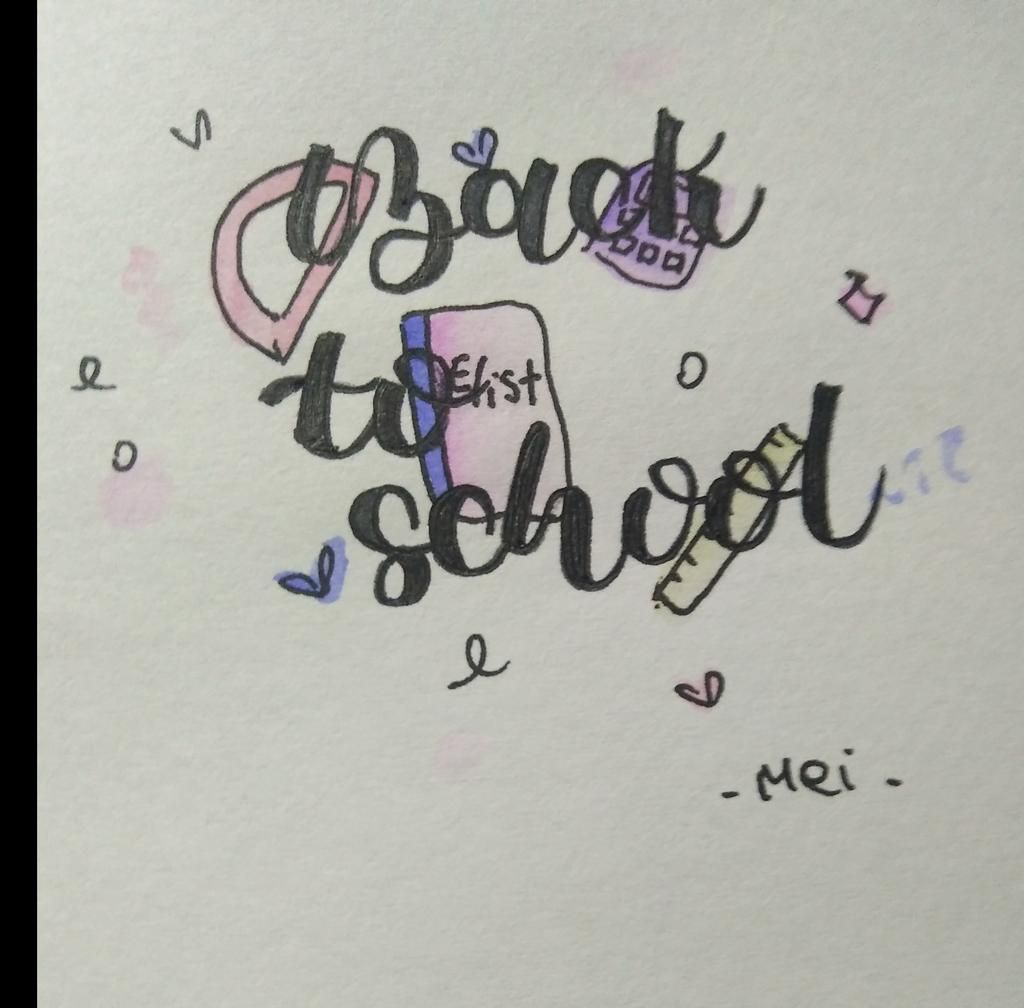 Back
to
Elist
school
- Mei -